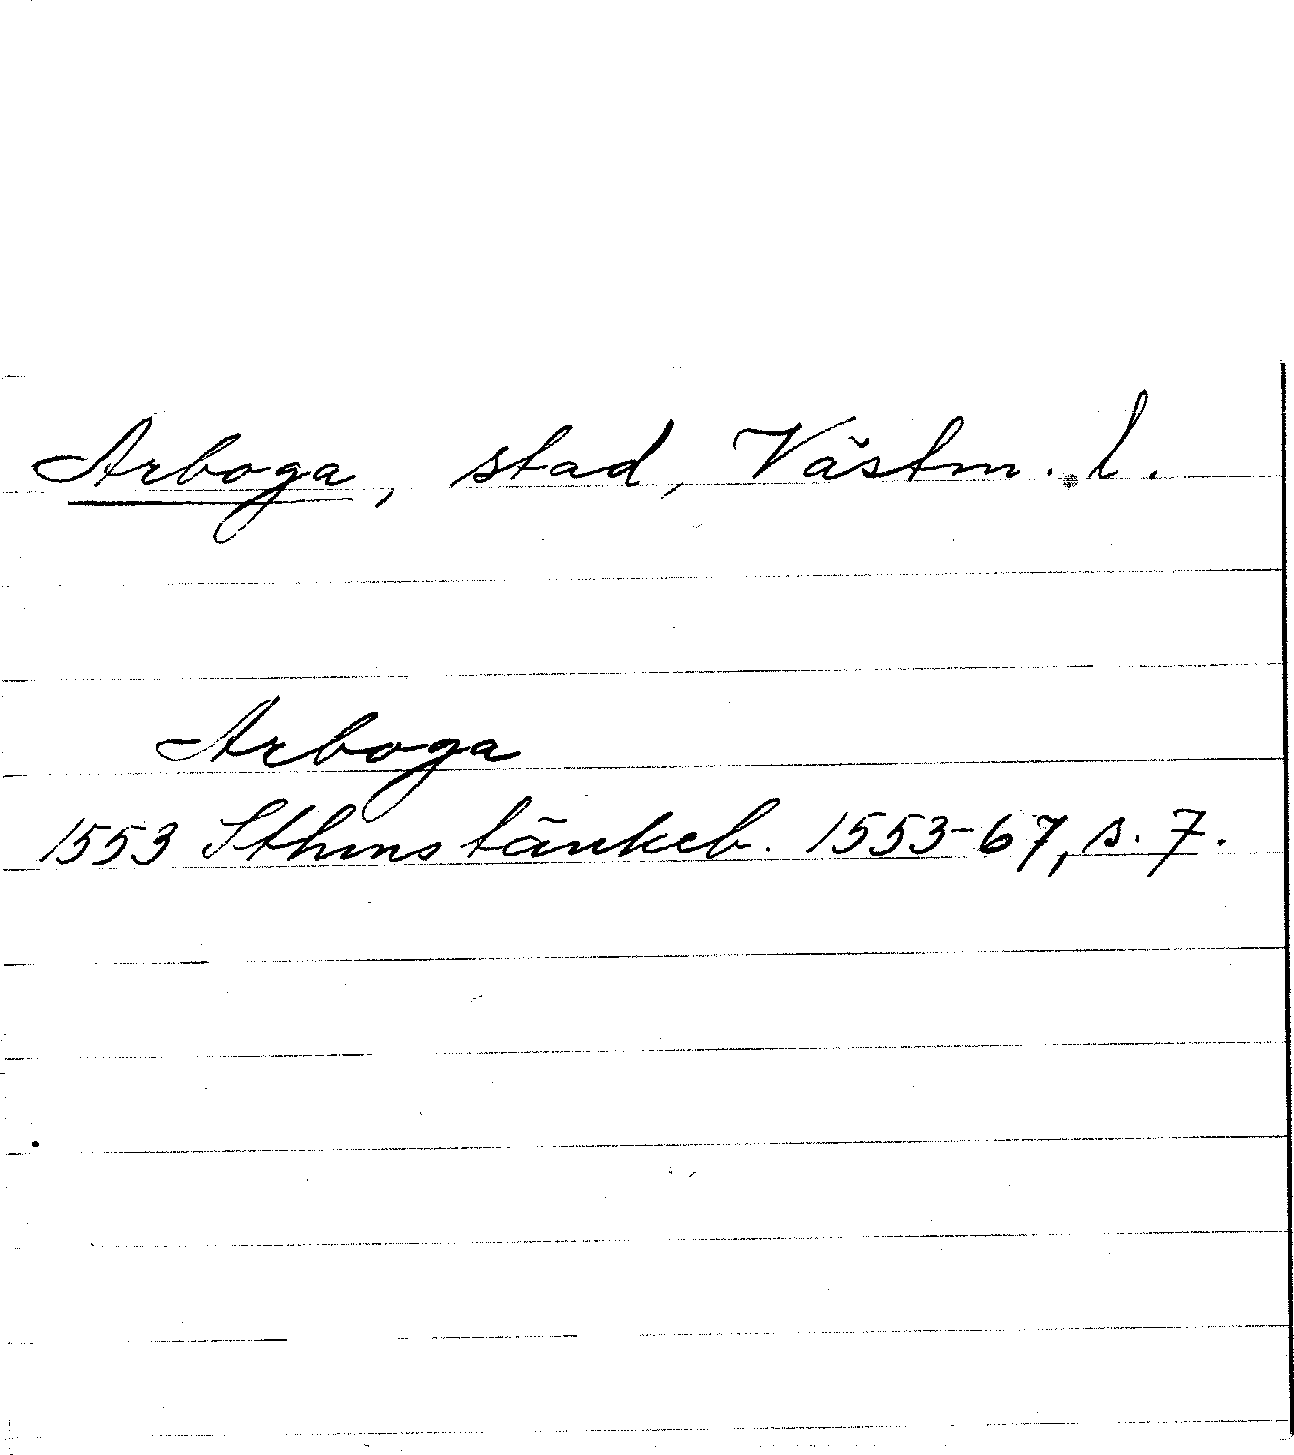 Arboga, stad, Västm. l.
Arboga
1553 Sthms tänkeb. 1553-67, s. 7.